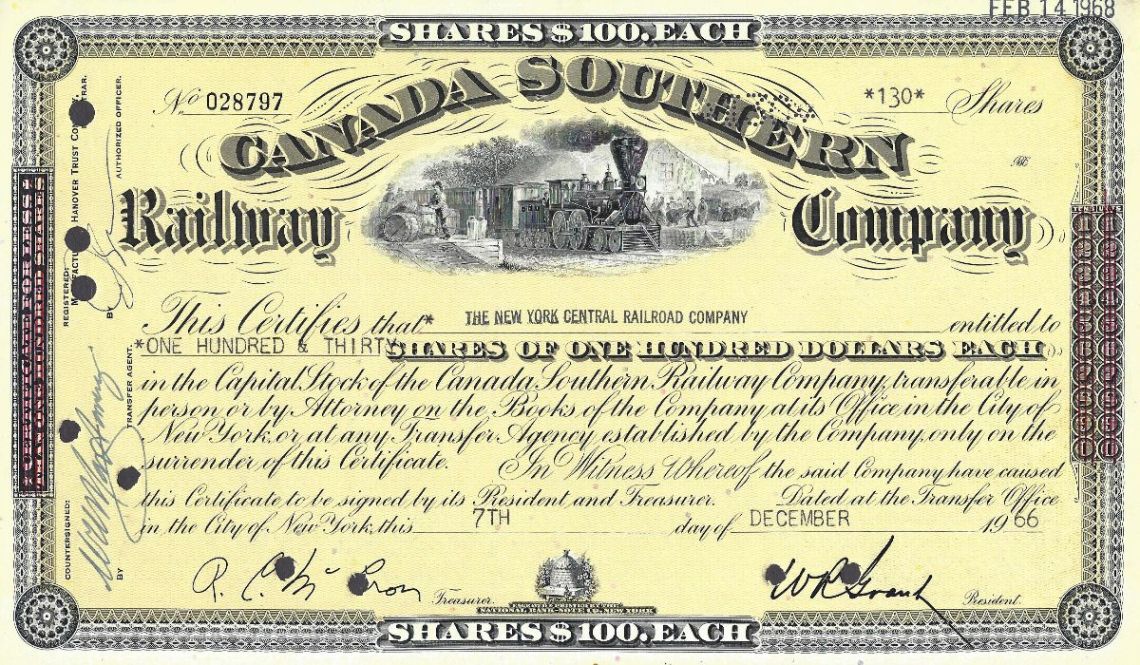 FEB 14 1968
SHARES $100. EACH
No 028797
*130* Shares
CANADA SOUTHERN
Railway Company
This Certifies that* THE NEW YORK CENTRAL RAILROAD COMPANY entitled to
*ONE HUNDRED & THIRTY SHARES OF ONE HUNDRED DOLLARS EACH
in the Capital Stock of the Canada Southern Railway Company, transferable in
person or by Attorney on the Books of the Company at its Office in the City of
New York, or at any Transfer Agency established by the Company, only on the
surrender of this Certificate. In Witness Whereof the said Company have caused
this Certificate to be signed by its President and Treasurer. Dated at the Transfer Office
in the City of New York, this 7TH day of DECEMBER 1966
Treasurer.
ENGRAVED & PRINTED BY THE
NATIONAL BANK-NOTE CO. NEW YORK
President.
SHARES $100. EACH
COUNTERSIGNED:
BY
TRANSFER AGENT.
REGISTERED:
HANOVER TRUST
BY
AUTHORIZED OFFICER.